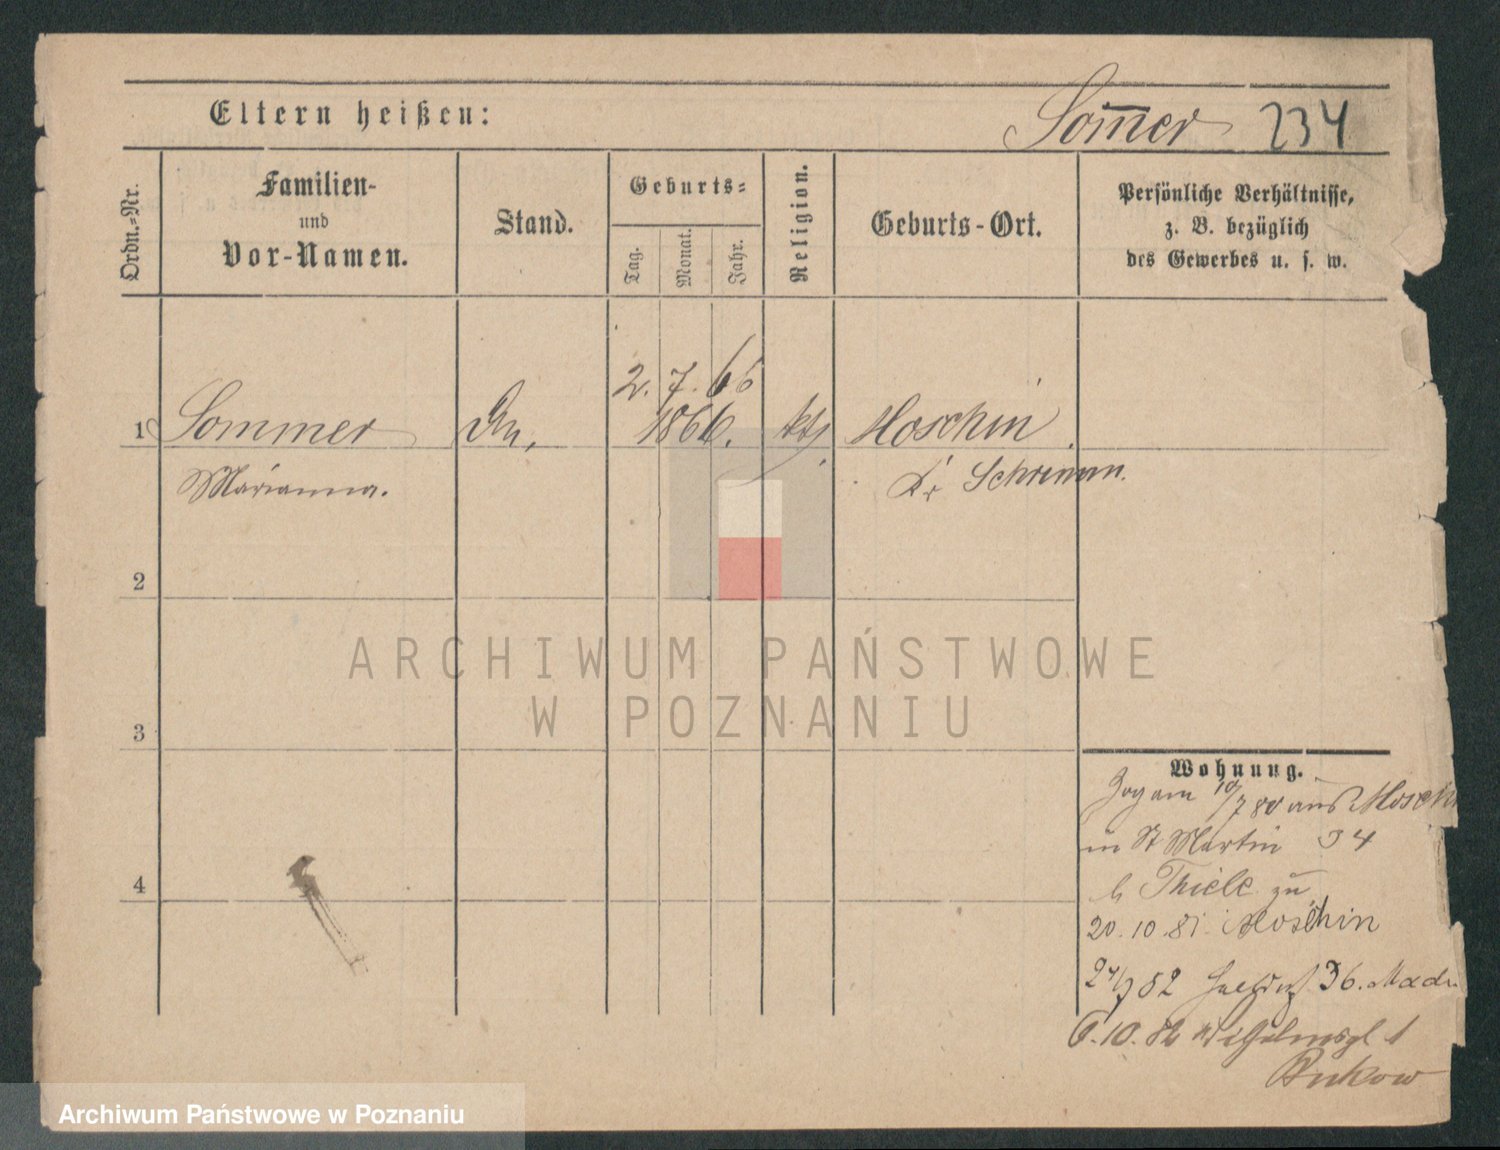 Eltern heißen:
Som̅er 234
Ordn.-Nr.
Familien-
und
Vor-Namen.
Stand.
Geburts-
Tag.
Monat.
Jahr.
Religion.
Geburts-Ort.
Persönliche Verhältnisse,
z. B. bezüglich
des Gewerbes u. s. w.
2. 7. 65
1 Sommer 1866. kth Moschin
Marianna. Kr Schrimm.
2
3
4
Wohnung.
Zog am 10/7 80 aus Moschin
in St Martin 34
b Thiele zu
20.10.81 Moschin
24/9 82 36.
6.10.82 Wilhelmspl 1
ARCHIWUM PAŃSTWOWE
W POZNANIU
Archiwum Państwowe w Poznaniu